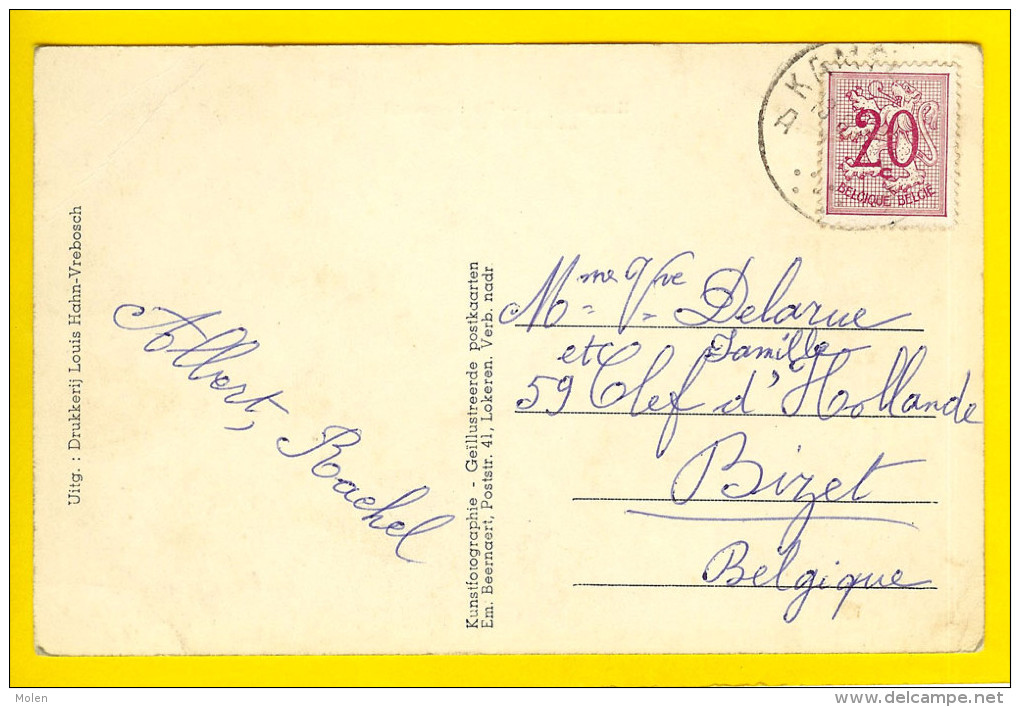 Uitg. : Drukkerij Louis Hahn-Vrebosch
Albert, Rachel
Kunstfotographie - Geïllustreerde postkaarten
Em. Beernaert, Poststr. 41, Lokeren. Verb. nadr
20
c
BELGIQUE BELGIË
Mme Vve Delarue
et Famille
59 Clef d'Hollande
Bizet
Belgique
Molen
www.delcampe.net